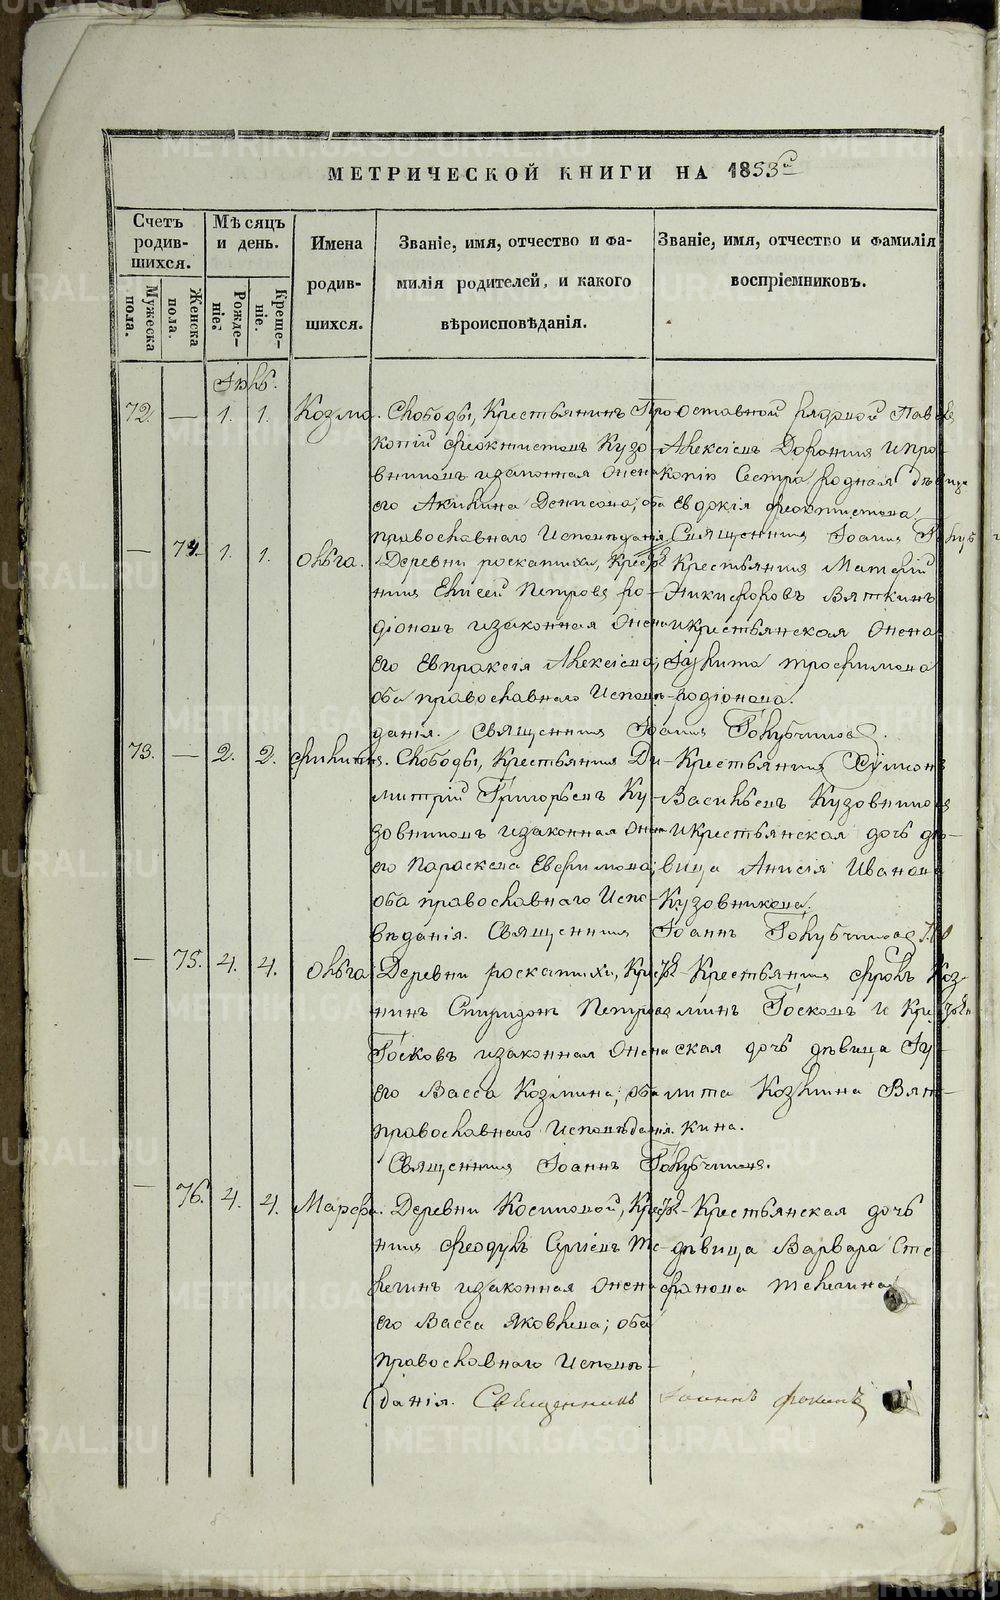 МЕТРИЧЕСКОЙ КНИГИ НА 1853й
Счетъ родив-шихся.
Мужеска пола.
Женска пола.
Мѣсяцъ и день.
Рожде-ніе.
Креще-ніе.
Имена родив-шихся.
Званіе, имя, отчество и фа-
милія родителей, и какого
вѣроисповѣданія.
Званіе, имя, отчество и фамилія
воспріемниковъ.
72. — 1. 1. Козма. Слободы, Крестьянинъ Про-
копій Феоктистовъ Кузо-
вниковъ и законная жена
его Акилина Денисова; оба
православнаго Исповѣданія.
отставной рядовой
Алексѣевъ и Про-
копію Сестра родная дѣвица
Евдокія Феоктистова
Священникъ Іоаннъ
— 74. 1. 1. Ольга. Деревни роскатихи, Крестья-
нинъ Елисей Петровъ ро-
діоновъ и законная жена
его Евпраксія Алексіева;
оба православнаго Исповѣ-
данія. Священникъ Іоаннъ Голубчиковъ.
Крестьянинъ Матвѣй
Никифоровъ Вяткинъ
и крестьянская жена
Іулита трофимова
родіонова.
73. — 2. 2. Филиппъ. Слободы, Крестьянинъ Ди-
митрій Григорьевъ Ку-
зовниковъ и законная жена
его Параскева Евфимова;
оба православнаго Испо-
вѣданія. Священникъ Іоаннъ Голубчиковъ
Крестьянинъ Сѵмеонъ
Васильевъ Кузовниковъ
и крестьянская дочь дѣ-
вица Анисія Иванова
Кузовникова.
— 75. 4. 4. Ольга Деревни роскатихи, Крестья-
нинъ Спиридонъ Петровъ
Госковъ и законная жена
его Васса Козмина; оба
православнаго Исповѣданія.
Священникъ Іоаннъ Голубчиковъ.
Крестьянинъ Фролъ Коз-
минъ Госковъ и Крестьян-
ская дочь дѣвица Іу-
лита Козмина Вят-
кина.
— 76. 4. 4. Марфа. Деревни Косиковой, Крестья-
нинъ Феодулъ Сергіевъ Те-
легинъ и законная жена
его Васса Яковлева; оба
православнаго Исповѣ-
данія. Священникъ Іоаннъ Фокинъ
Крестьянская дочь
дѣвица Варвара Сте-
фанова Телегина